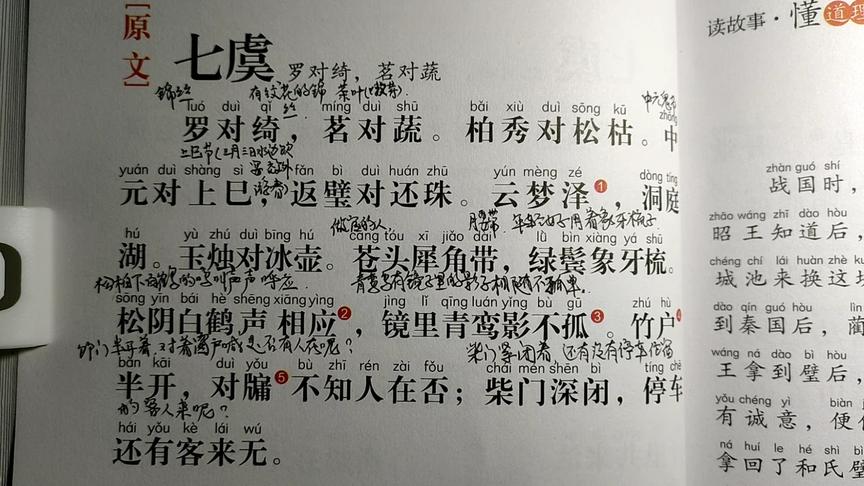 [原文]
七虞 罗对绮，茗对蔬
锦丝 有纹花的锦 茶叶
luó duì qǐ míng duì shū bǎi xiù duì sōng kū zhōng
罗对绮，茗对蔬。柏秀对松枯。中
上巳节(三月三日水边饮
yuán duì shàng sì fǎn bì duì huán zhū yún mèng zé dòng tíng
元对上巳，返璧对还珠。云梦泽❶，洞庭
做官的人 年轻女子用着象牙梳子
hú yù zhú duì bīng hú cāng tóu xī jiǎo dài lǜ bìn xiàng yá shū
湖。玉烛对冰壶。苍头犀角带，绿鬓象牙梳。
松柏下白鹤的鸣叫声声呼应 青鸾只有镜子里的影子相随不孤单。
sōng yīn bái hè shēng xiāng yìng jìng lǐ qīng luán yǐng bù gū zhú hù
松阴白鹤声相应❷，镜里青鸾影不孤❸。竹户
竹门半开着 对着窗户 是否有人在呢？ 柴门紧闭着，还有没有停车
bàn kāi duì yǒu bù zhī rén zài fǒu chái mén shēn bì tíng chē
半开，对牖❺不知人在否；柴门深闭，停车
的客人来呢？
hái yǒu kè lái wú
还有客来无。
读故事·懂道理
zhàn guó shí
战国时，
zhāo wáng zhī dào hòu
昭王知道后，
chéng chí lái huàn zhè
城池来换这块
dào qín guó hòu
到秦国后，蔺
wáng ná dào bì hòu
王拿到璧后，
yǒu chéng yì biàn
有诚意，便
ná huí le hé shì bì
拿回了和氏璧